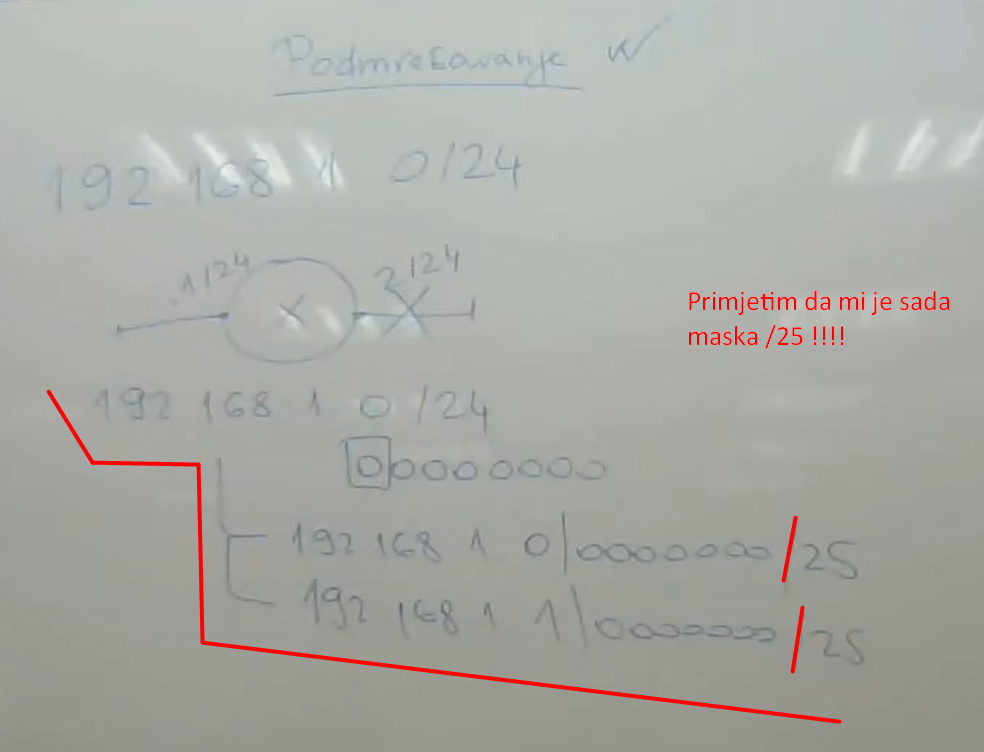 Podmrežavanje
192 168 1 0/24
.1/24
2/24
X
Primjetim da mi je sada
maska /25 !!!!
192 168 1 0 /24
00000000
192 168 1 0|0000000/25
192 168 1 1|0000000/25